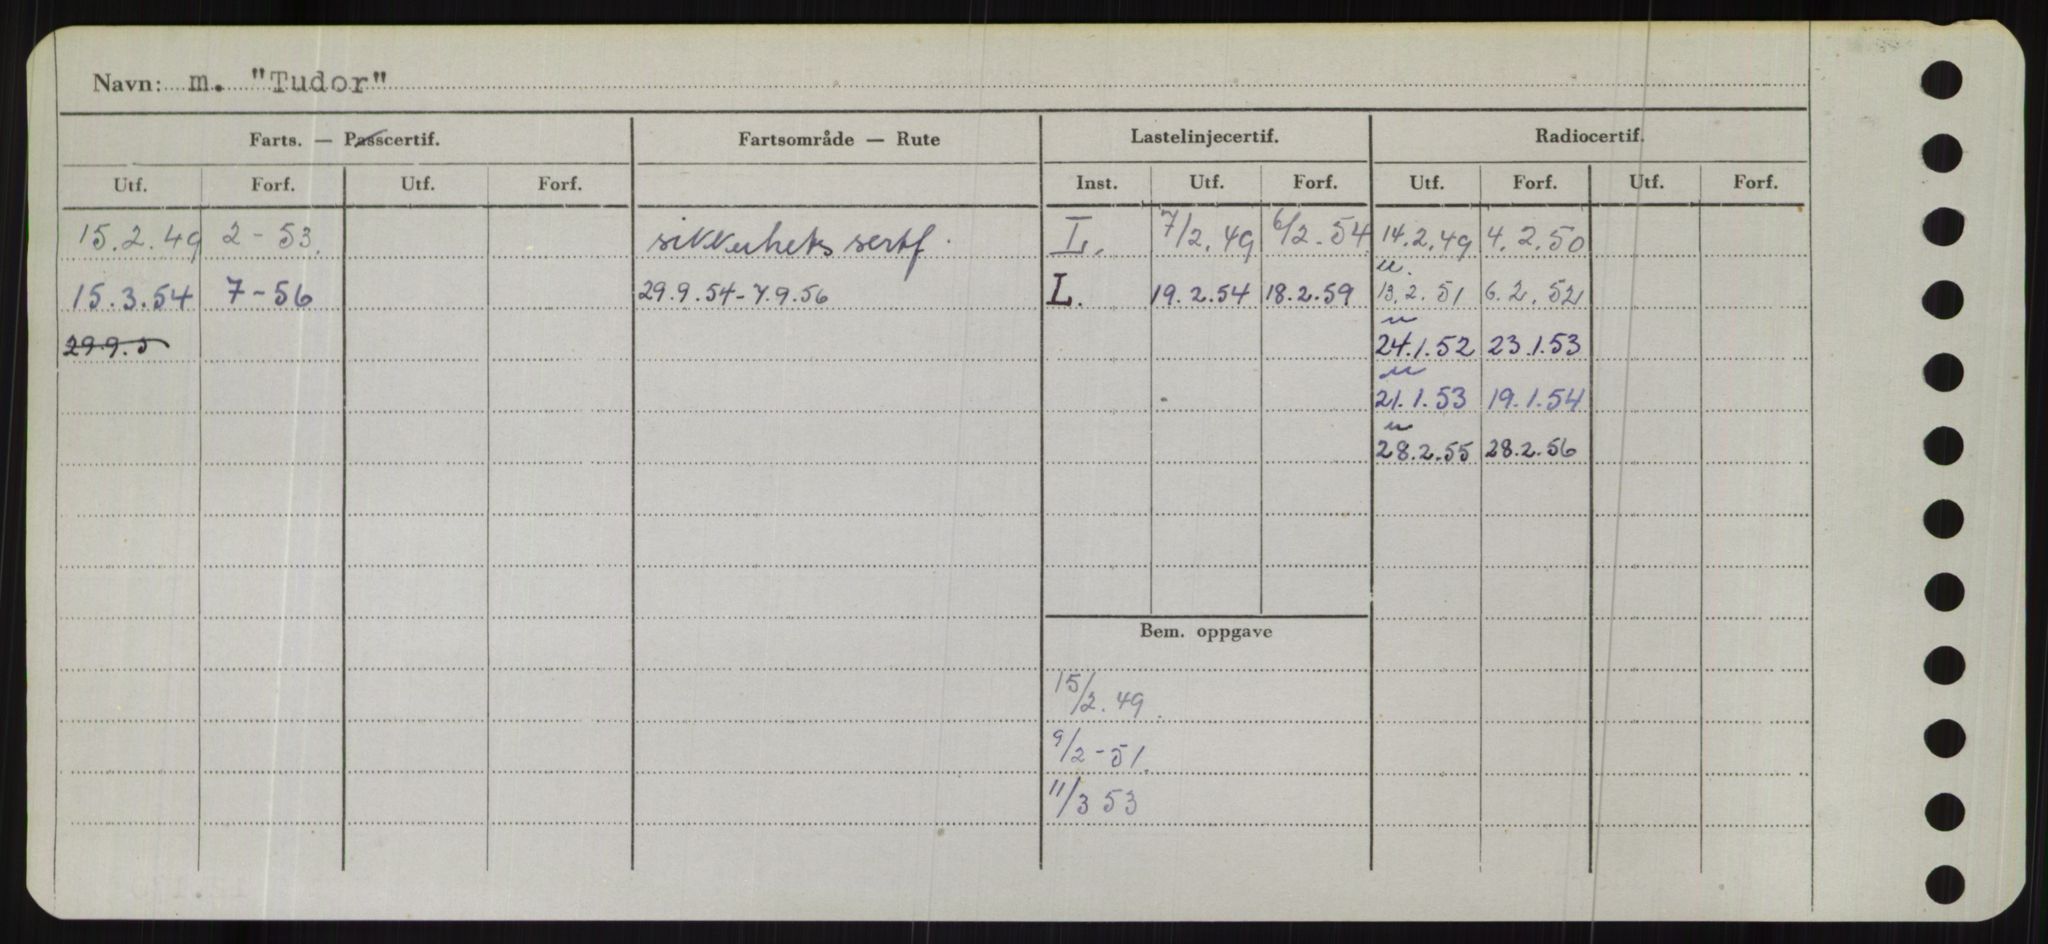 Navn: m. "Tudor"
Farts. — Passcertif. Fartsområde — Rute Lastelinjecertif. Radiocertif.
Utf. Forf. Utf. Forf. Inst. Utf. Forf. Utf. Forf. Utf. Forf.
15.2.49 2-53. sikkerhets sertf. L. 7/2.49 6/2.54 14.2.49 4.2.50
15.3.54 7-56 29.9.54-7.9.56 L. 19.2.54 18.2.59 13.2.51 6.2.52
29.9.5 24.1.52 23.1.53
21.1.53 19.1.54
28.2.55 28.2.56
Bem. oppgave
15/2.49.
9/2-51.
11/3 53